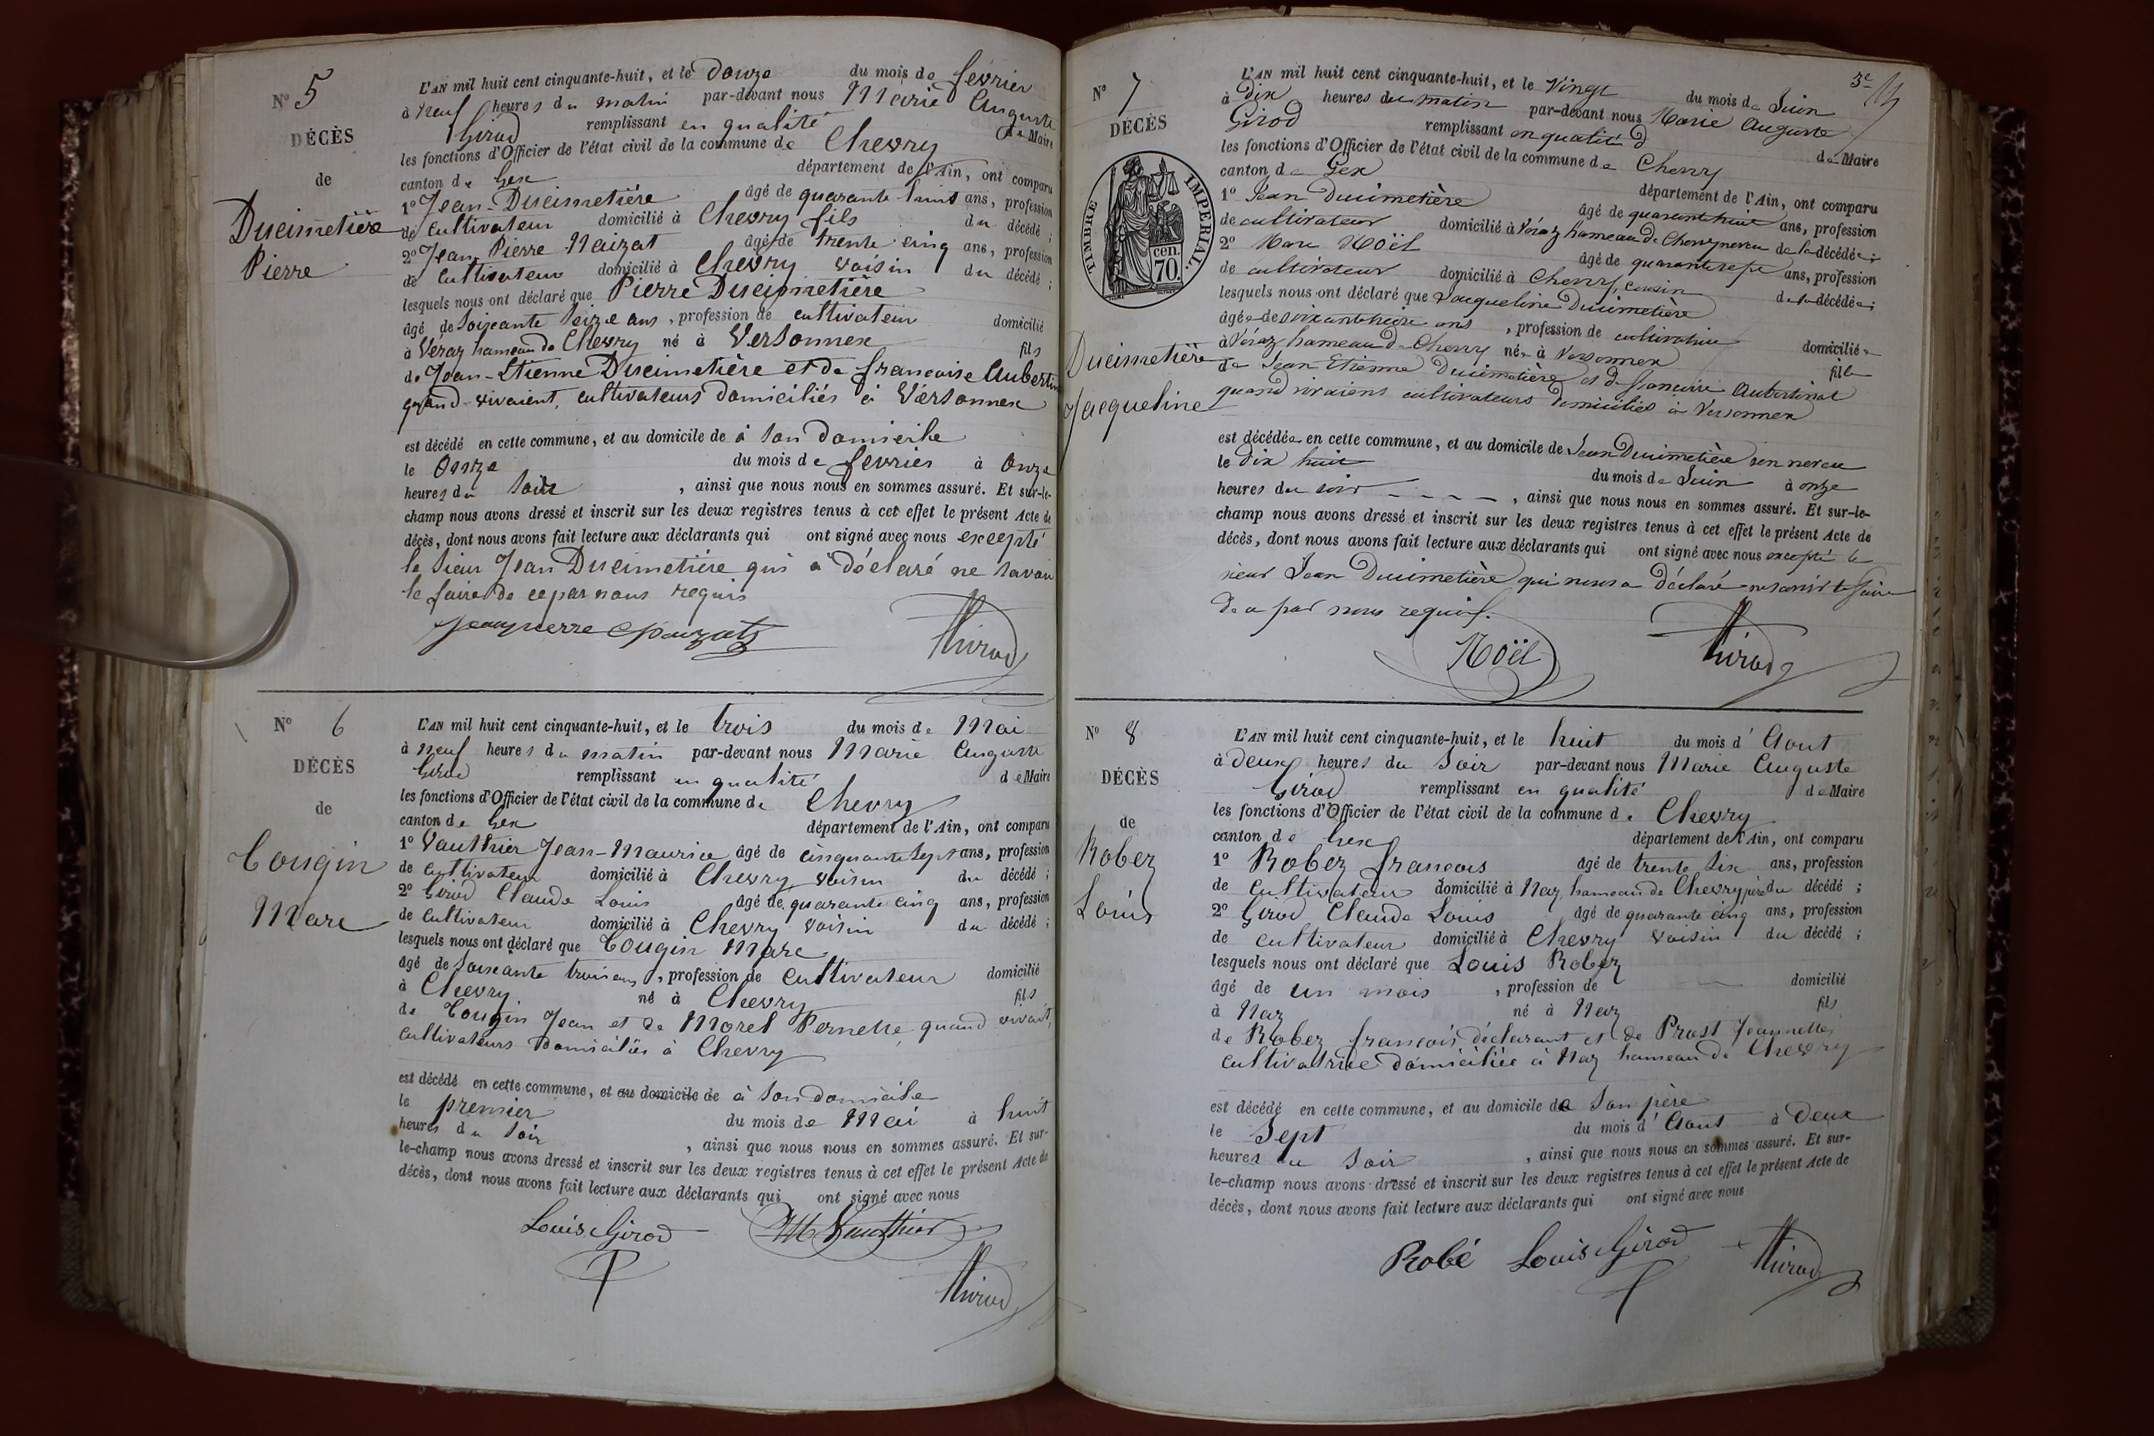 N° 5
DÉCÈS
de
Ducimetière
Pierre
L'AN mil huit cent cinquante-huit, et le douze du mois de février
à neuf heures du matin par-devant nous Marie Auguste
Girod remplissant en qualité de Maire
les fonctions d'Officier de l'état civil de la commune de Chevry
canton de Gex département de l'Ain, ont comparu
1° Jean Ducimetière âgé de quarante huit ans, profession
de cultivateur domicilié à Chevry fils du décédé ;
2° Jean Pierre âgé de trente cinq ans, profession
de cultivateur domicilié à Chevry voisin du décédé ;
lesquels nous ont déclaré que Pierre Ducimetière
âgé de soixante seize ans, profession de cultivateur domicilié
à Véraz hameau de Chevry né à Versonnex fils
de Jean-Etienne Ducimetière et de francoise
quand vivaient, cultivateurs domiciliés à Versonnex
est décédé en cette commune, et au domicile de à son domicile
le Onze du mois de fevrier à onze
heures du soir , ainsi que nous nous en sommes assuré. Et sur-le-
champ nous avons dressé et inscrit sur les deux registres tenus à cet effet le présent Acte de
décès, dont nous avons fait lecture aux déclarants qui ont signé avec nous excepté
le sieur Jean Ducimetière qui a déclaré ne savoir
le faire de ce par nous requis
Girod
N° 6
DÉCÈS
de
Tougin
Marc
L'AN mil huit cent cinquante-huit, et le trois du mois de Mai
à neuf heures du matin par-devant nous Marie Auguste
Girod remplissant en qualité de Maire
les fonctions d'Officier de l'état civil de la commune de Chevry
canton de Gex département de l'Ain, ont comparu
1° Vauthier Jean-Maurice âgé de cinquante sept ans, profession
de cultivateur domicilié à Chevry voisin du décédé ;
2° Girod Claude Louis âgé de quarante cinq ans, profession
de cultivateur domicilié à Chevry voisin du décédé ;
lesquels nous ont déclaré que Tougin Marc
âgé de soixante trois ans, profession de cultivateur domicilié
à Chevry né à Chevry fils
de Tougin Jean et de Morel Pernette, quand vivait,
cultivateurs domiciliés à Chevry
est décédé en cette commune, et au domicile de à son domicile
le premier du mois de Mai à huit
heures du soir , ainsi que nous nous en sommes assuré. Et sur-
le-champ nous avons dressé et inscrit sur les deux registres tenus à cet effet le présent Acte de
décès, dont nous avons fait lecture aux déclarants qui ont signé avec nous
Louis Girod JM Vauthier
Girod
3e
N° 7
DÉCÈS
TIMBRE IMPÉRIAL.
cen.
70.
Ducimetière
Jacqueline
L'AN mil huit cent cinquante-huit, et le vingt du mois de Juin
à dix heures du matin par-devant nous Marie Auguste
Girod remplissant en qualité d de Maire
les fonctions d'Officier de l'état civil de la commune de Chevry
canton de Gex département de l'Ain, ont comparu
1° Jean Ducimetière âgé de quarante huit ans, profession
de cultivateur domicilié à Véraz hameau de Chevry neveu de la décédée ;
2° Marc Noël âgé de quarante sept ans, profession
de cultivateur domicilié à Chevry, cousin de la décédée ;
lesquels nous ont déclaré que Jacqueline Ducimetière
âgée de ans , profession de cultivatrice domiciliée
à Véraz hameau de Chevry née à Versonnex fille
de Jean Etienne Ducimetière et de francoise
quand vivaient cultivateurs domiciliés à Versonnex
est décédée en cette commune, et au domicile de Jean Ducimetière son neveu
le dix huit du mois de Juin à onze
heures du soir - - - - , ainsi que nous nous en sommes assuré. Et sur-le-
champ nous avons dressé et inscrit sur les deux registres tenus à cet effet le présent Acte de
décès, dont nous avons fait lecture aux déclarants qui ont signé avec nous excepté le
sieur Jean Ducimetière qui nous a déclaré ne savoir le faire
de ce par nous requis.
Noël Girod
N° 8
DÉCÈS
de
Robez
Louis
L'AN mil huit cent cinquante-huit, et le huit du mois d'Aout
à deux heures du soir par-devant nous Marie Auguste
Girod remplissant en qualité de Maire
les fonctions d'Officier de l'état civil de la commune de Chevry
canton de Gex département de l'Ain, ont comparu
1° Robez francois âgé de trente six ans, profession
de cultivateur domicilié à Naz hameau de Chevry père du décédé ;
2° Girod Claude Louis âgé de quarante cinq ans, profession
de cultivateur domicilié à Chevry voisin du décédé ;
lesquels nous ont déclaré que Louis Robez
âgé de un mois , profession de — domicilié
à Naz né à Naz fils
de Robez francois déclarant et de Prost Jeannette,
cultivatrice domiciliée à Naz hameau de Chevry
est décédé en cette commune, et au domicile de son père
le sept du mois d'Aout à deux
heures du soir , ainsi que nous nous en sommes assuré. Et sur-
le-champ nous avons dressé et inscrit sur les deux registres tenus à cet effet le présent Acte de
décès, dont nous avons fait lecture aux déclarants qui ont signé avec nous
Robé Louis Girod Girod